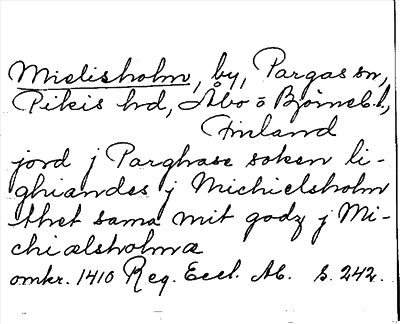 Mielisholm, by, Pargas sn,
Pikis hd, Åbo o Björneb. l.,
Finland
jord j Parghase soken li-
ghiandes j Michielsholm
thet sama mit godz j Mi-
chiælsholmæ
omkr. 1410 Reg. Eccl. Ab. S. 242.